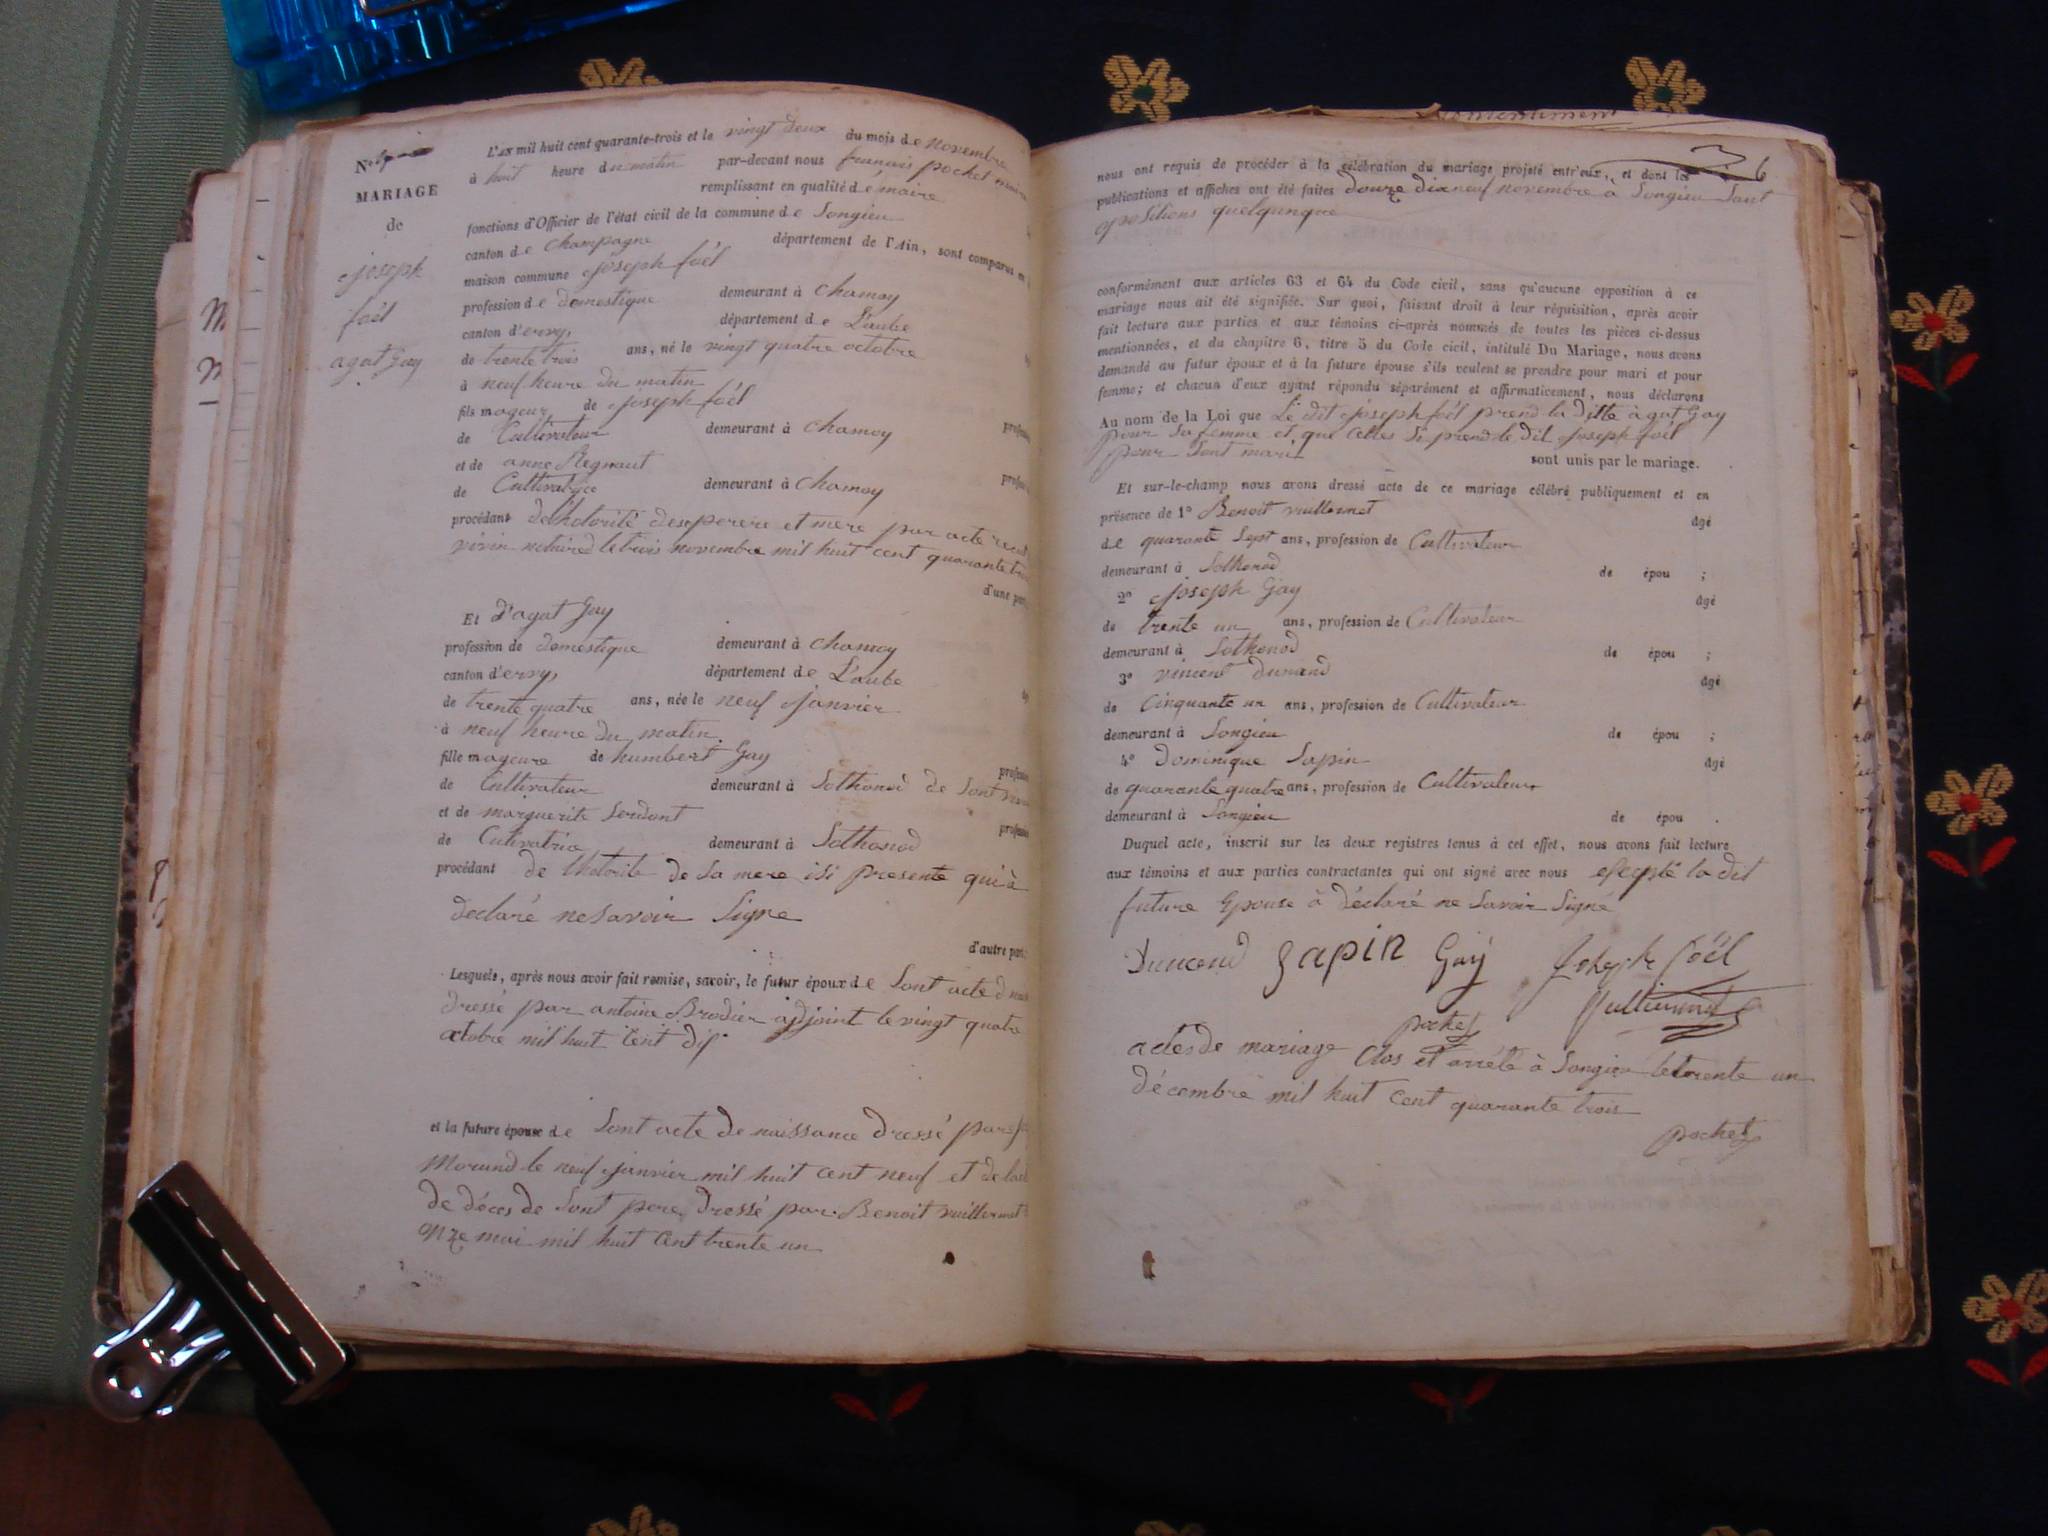 No
MARIAGE
de
joseph
foël
agat Gay
L'AN mil huit cent quarante-trois et le vingt deux du mois de novembre
à huit heure du matin par-devant nous franais pochet maire
remplissant en qualité de maire
fonctions d'Officier de l'état civil de la commune de Songieu
canton de champagne département de l'Ain, sont comparus en
maison commune joseph foël
profession de domestique demeurant à chamoy
canton d'ervy, département de L'aube
de trente trois ans, né le vingt quatre octobre
à neuf heure du matin
fils mageur de joseph foël
de Cultivateur demeurant à chamoy
et de anne Regnaut
de Cultivatrice demeurant à chamoy
procédant de lhotorité desepere et mere par acte recu
vivin notaired le trois novembre mil huit cent quarante trois
d'une part,
Et d'agat Gay
profession de domestique demeurant à chamoy
canton d'ervy, département de L'aube
de trente quatre ans, née le neuf janvier
à neuf heure du matin
fille mageure de humbert Gay
de Cultivateur demeurant à Sothonod de Sont
et de marguerite Serdont
de Cutivatric demeurant à Sothonod
procédant de lhotorite de Sa mere isi presente qui à
declaré ne Savoir Signe
d'autre part:
Lesquels, après nous avoir fait remise, savoir, le futur époux de Sont acte d
dressé par antoine Brodier adjoint le vingt quatre
octobre mil huit Cent dix
et la future épouse de Sont acte de naissance dressé par
Morund le neuf janvier mil huit cent neuf et de
de déces de Sont pere dressé par Benoit vuillermet
onze mai mil huit Cent trente un
6
nous ont requis de procéder à la célébration du mariage projeté entr'eux, et dont les
publications et affiches ont été faites douze dix neuf novembre à Songieu Sant
oposilions quelqunque
conformément aux articles 63 et 64 du Code civil, sans qu'aucune opposition à ce
mariage nous ait été signifiée. Sur quoi, faisant droit à leur réquisition, après avoir
fait lecture aux parties et aux témoins ci-après nommés de toutes les pièces ci-dessus
mentionnées, et du chapitre 6, titre 5 du Code civil, intitulé Du Mariage, nous avons
demandé au futur époux et à la future épouse s'ils veulent se prendre pour mari et pour
femme; et chacun d'eux ayant répondu séparément et affirmativement, nous déclarons
Au nom de la Loi que Le dit joseph foël prend la ditte àgat Gay
pour Sa femme et que Celles Si prend le dit joseph foël
pour Sont mari
sont unis par le mariage.
Et sur-le-champ nous avons dressé acte de ce mariage célébré publiquement et en
présence de 1° Benoit vuillermet âgé
de quarante Sept ans, profession de Cultivateur
demeurant à Sothonod de épou ;
2° joseph Gay âgé
de trente un ans, profession de Cultivateur
demeurant à Sothonod de épou ;
3° vincent durand âgé
de Cinquante un ans, profession de Cultivateur
demeurant à Songieu de épou ;
4° Dominique Sapin âgé
de quarante quatre ans, profession de Cultivateur
demeurant à Songieu de épou .
Duquel acte, inscrit sur les deux registres tenus à cet effet, nous avons fait lecture
aux témoins et aux parties contractantes qui ont signé avec nous escepté la dit
future Epouse à déclaré ne Savoir Signé
Durand Sapin Gay Joseph foël
Vuillermet
pochet
actes de mariage Clos et arrêté à Songieu le trente un
décembre mil huit Cent quarante trois
pochet